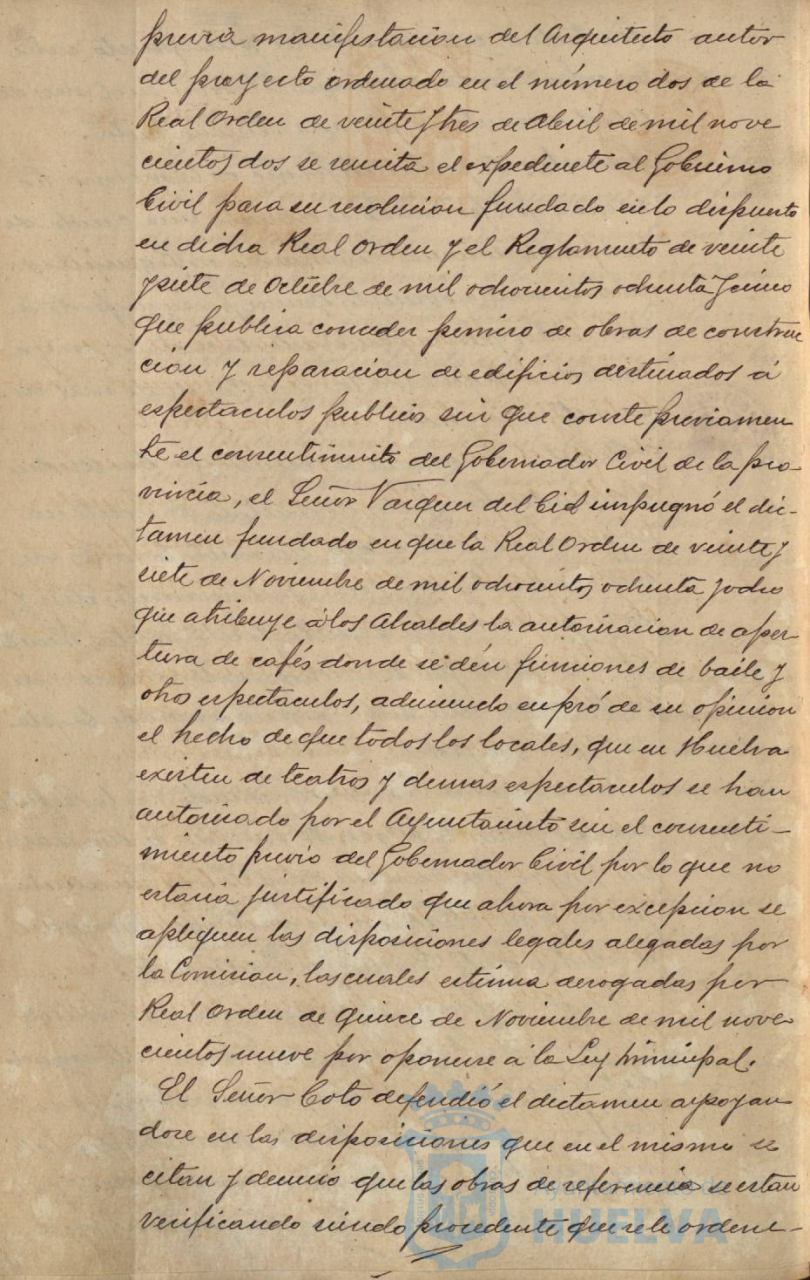 previa manifestacion del Arquitecto autor
del proyecto ordenado en el número dos de la
Real Orden de veinte y tres de Abril de mil nove
cientos dos se remita el expediente al Gobierno
Civil para su resolucion fundado en lo dispuesto
en dicha Real Orden y el Reglamento de veinte
y siete de Octubre de mil ochocientos ochenta y cinco
que publica conceder permiso de obras de construc
cion y reparacion de edificios destinados á
espectaculos publicos sin que conste previamen
te el consentimiento del Gobernador Civil de la pro-
vincia, el Señor Vazquez del Cid impugnó el dic-
tamen fundado en que la Real Orden de veinte y
siete de Noviembre de mil ochocientos ochenta y ocho
que atribuye á los Alcaldes la autorizacion de aper-
tura de cafés donde se dén funciones de baile y
otros espectaculos, aduciendo en pró de su opinion
el hecho de que todos los locales, que en Huelva
existen de teatros y demas espectaculos se han
autorizado por el Ayuntamiento sin el consenti-
miento previo del Gobernador Civil por lo que no
estaria justificado que ahora por excepcion se
apliquen las disposiciones legales alegadas por
la Comision, las cuales estima derogadas por
Real Orden de quince de Noviembre de mil nove-
cientos nueve por oponerse á la Ley Municipal.
El Señor Coto defendió el dictamen apoyan
dose en las disposiciones que en el mismo se
citan y denunció que las obras de referencia se estan
verificando siendo procedente que se le ordene-
HUELVA